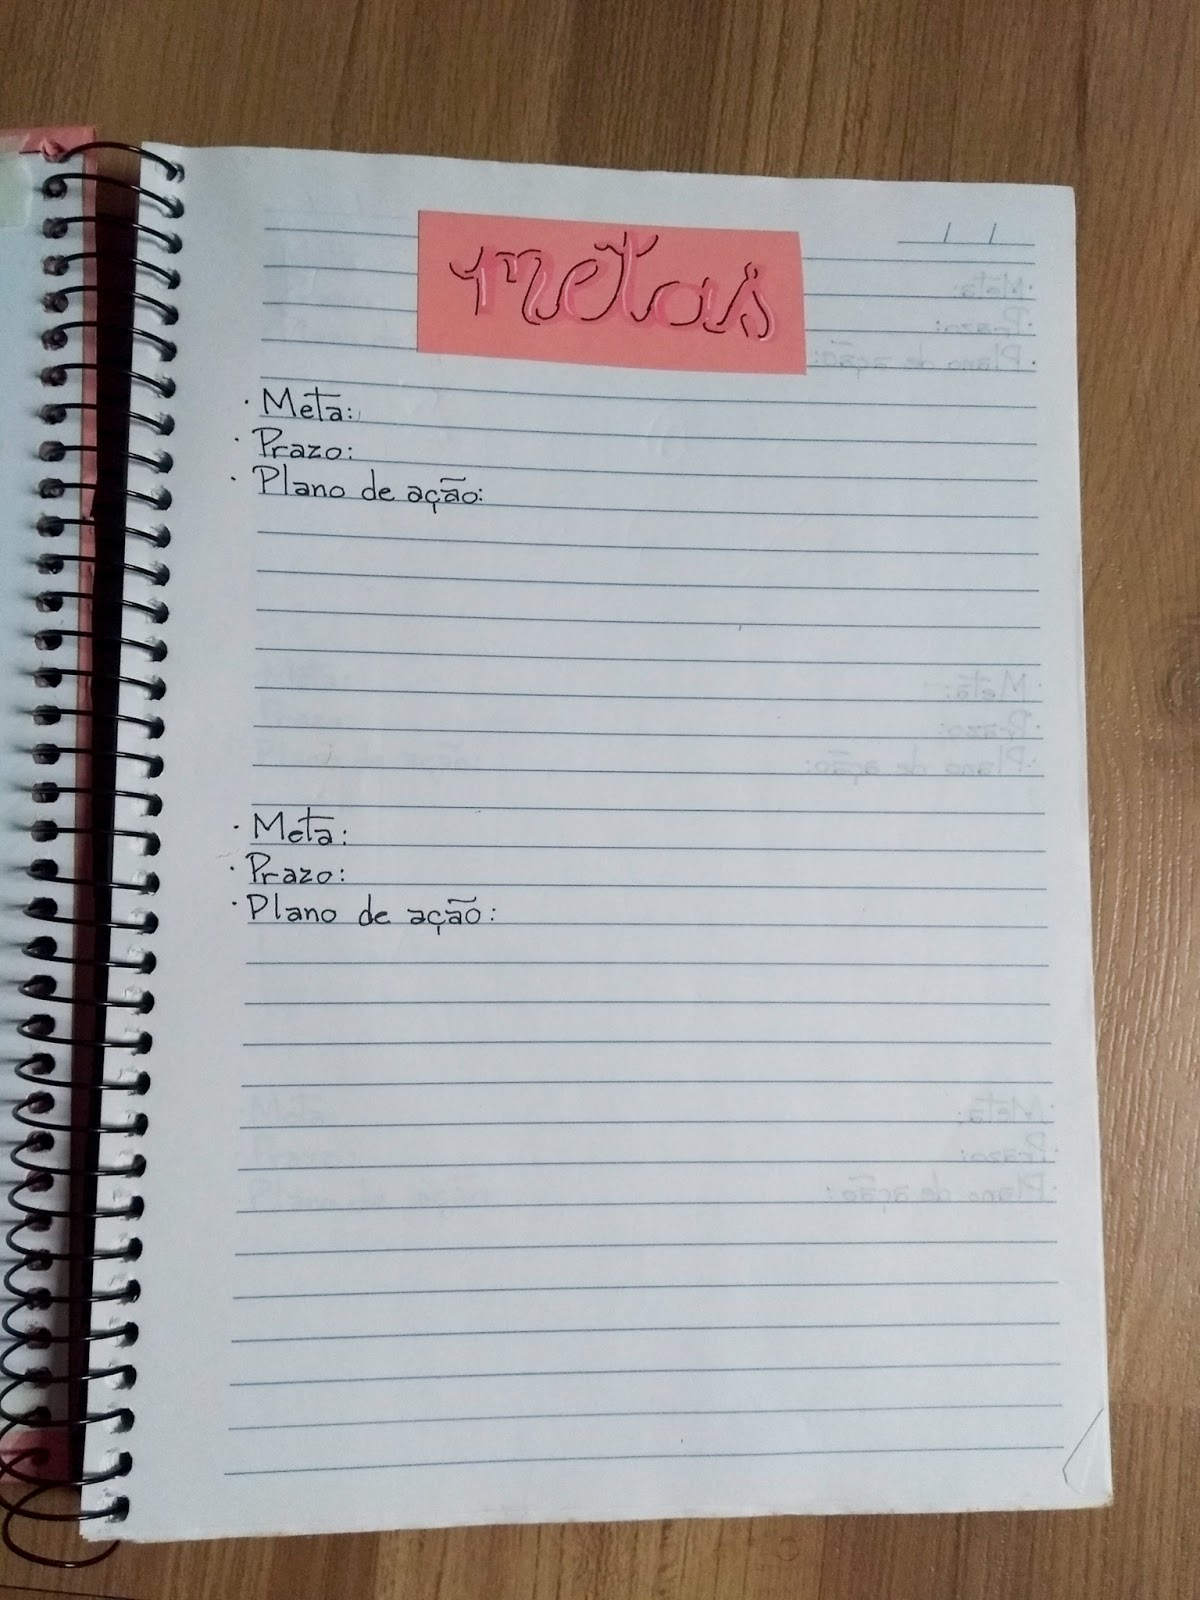 metas
· Meta:
· Prazo:
· Plano de ação:
· Meta:
· Prazo:
· Plano de ação: